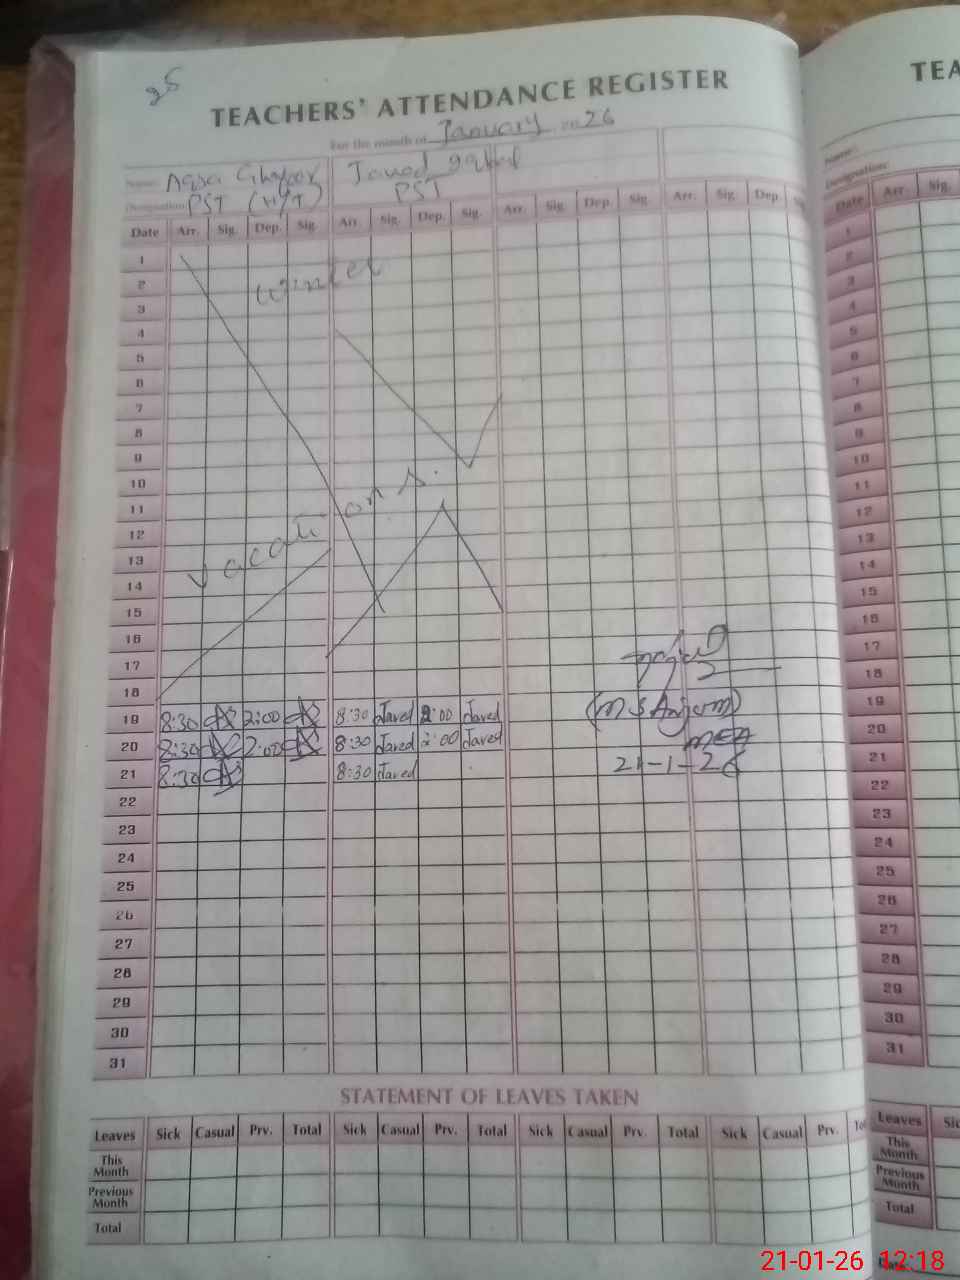 25
TEACHERS' ATTENDANCE REGISTER
For the month of January 2026
Name: Aqsa Ghafoor Javed
Designation: PST (H/T) PST
Date Arr. Sig. Dep. Sig. Arr. Sig. Dep. Sig. Arr. Sig. Dep. Sig. Arr. Sig. Dep.
1
2 Winter
3
4
5
6
7
8
9
10
11 Vacations.
12
13
14
15
16
17
18
19 8:30 2:00 8:30 Javed 2:00 Javed
(M S Anjum)
20 8:30 2:00 8:30 Javed 2:00 Javed
MEA
21 8:30 8:30 Javed
21-1-26
22
23
24
25
26
27
28
29
30
31
STATEMENT OF LEAVES TAKEN
Leaves Sick Casual Prv. Total Sick Casual Prv. Total Sick Casual Prv. Total Sick Casual Prv.
This Month
Previous Month
Total
TEA
Name:
Designation:
Date Arr. Sig.
1
2
3
4
5
6
7
8
9
10
11
12
13
14
15
16
17
18
19
20
21
22
23
24
25
26
27
28
29
30
31
Leaves
This Month
Previous Month
Total
Date
21-01-26 12:18